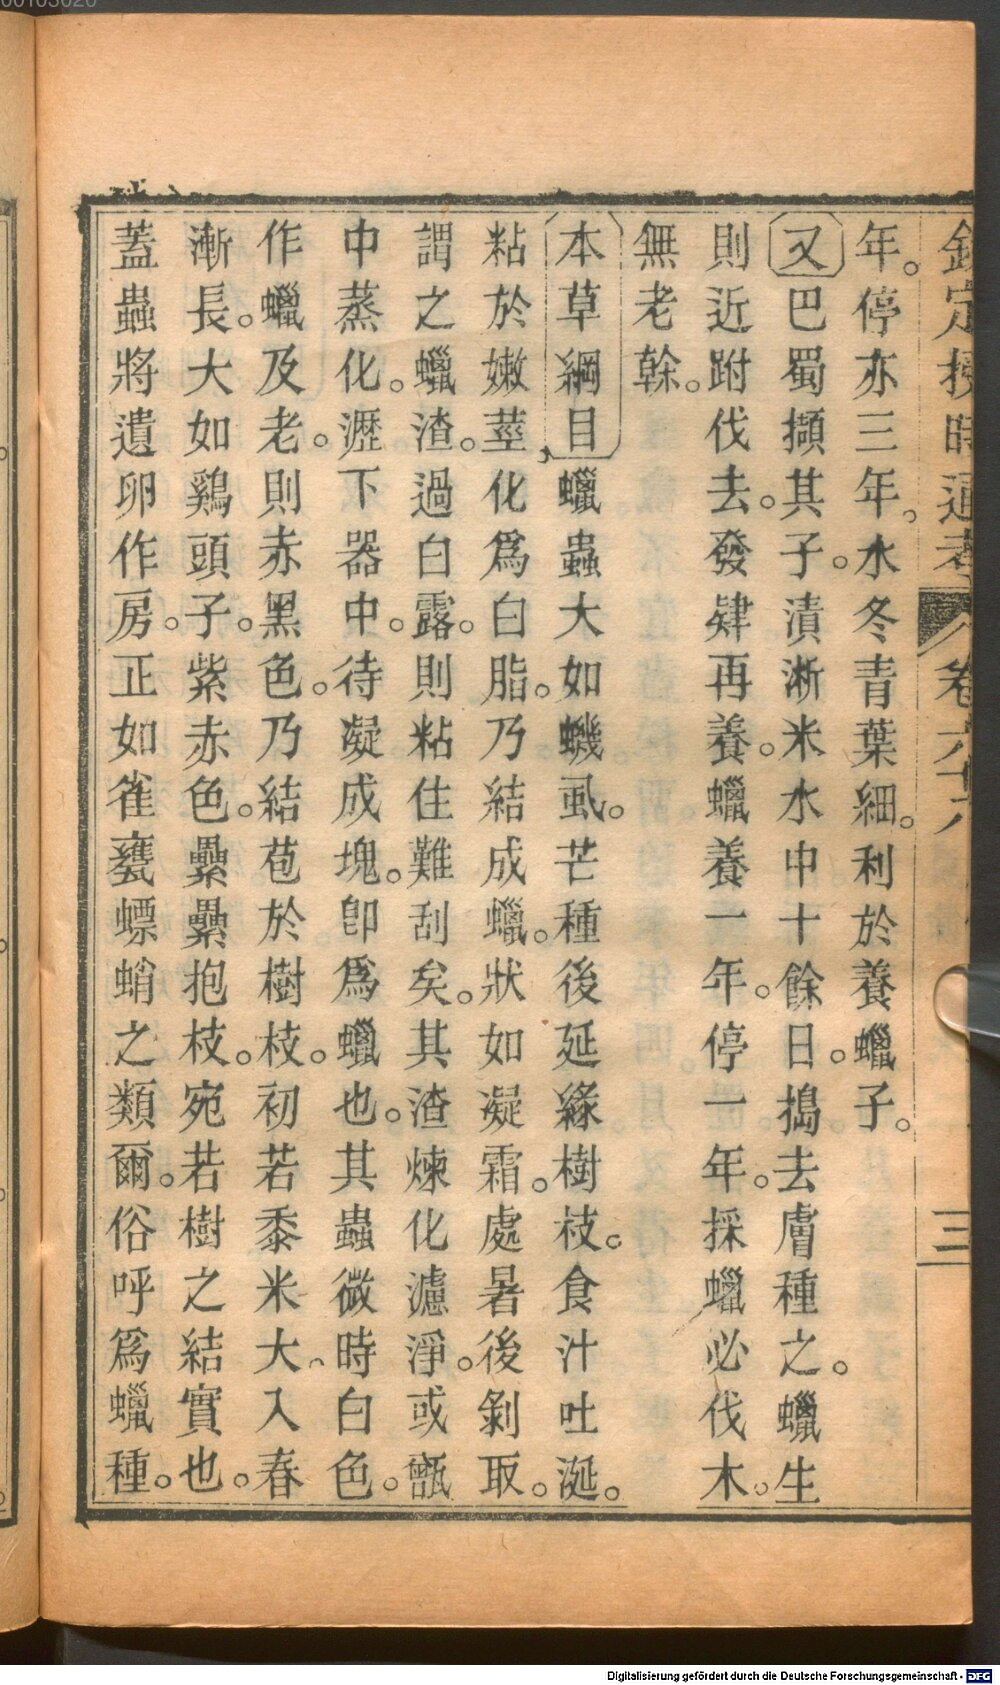 00103020
欽定授時通考 卷六十六 三
年。停亦三年。水冬青葉細。利於養蠟子。
又巴蜀擷其子。漬淅米水中十餘日。搗去膚種之。蠟生
則近跗伐去。發肄再養。蠟養一年。停一年。採蠟必伐木。
無老榦。
本草綱目蠟蟲大如蟣虱。芒種後延緣樹枝。食汁吐涎。
粘於嫩莖。化爲白脂。乃結成蠟。狀如凝霜。處暑後剝取。
謂之蠟渣。過白露。則粘住難刮矣。其渣煉化濾淨。或甑
中蒸化。瀝下器中。待凝成塊。卽爲蠟也。其蟲微時白色。
作蠟及老。則赤黑色。乃結苞於樹枝。初若黍米大。入春
漸長。大如鷄頭子。紫赤色。纍纍抱枝。宛若樹之結實也。
蓋蟲將遺卵作房。正如雀甕螵蛸之類爾。俗呼爲蠟種。
Digitalisierung gefördert durch die Deutsche Forschungsgemeinschaft - DFG